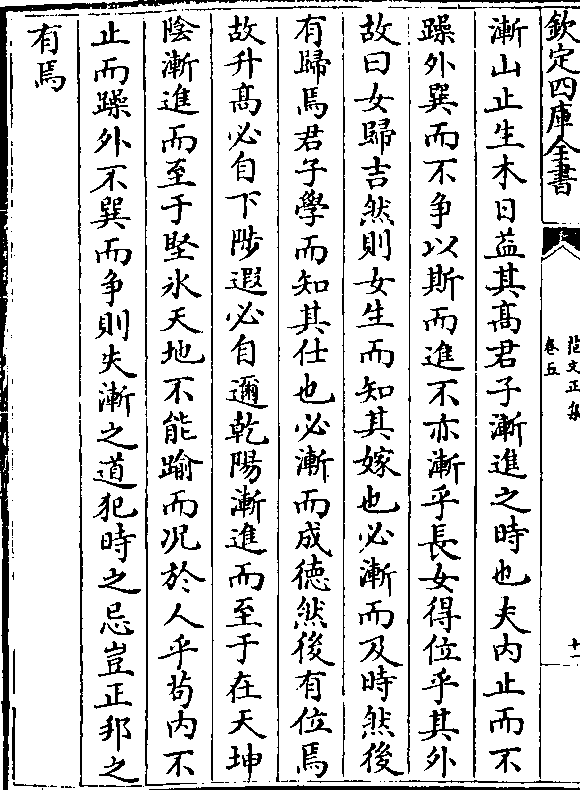 欽定四庫全書
范文正集
卷五
十一
漸山止生木日益其髙君子漸進之時也夫内止而不
躁外巽而不争以斯而進不亦漸乎長女得位乎其外
故曰女歸吉然則女生而知其嫁也必漸而及時然後
有歸焉君子學而知其仕也必漸而成徳然後有位焉
故升髙必自下陟遐必自邇乾陽漸進而至于在天坤
陰漸進而至于堅氷天地不能踰而况於人乎茍内不
止而躁外不巽而争則失漸之道犯時之忌豈正邦之
有焉